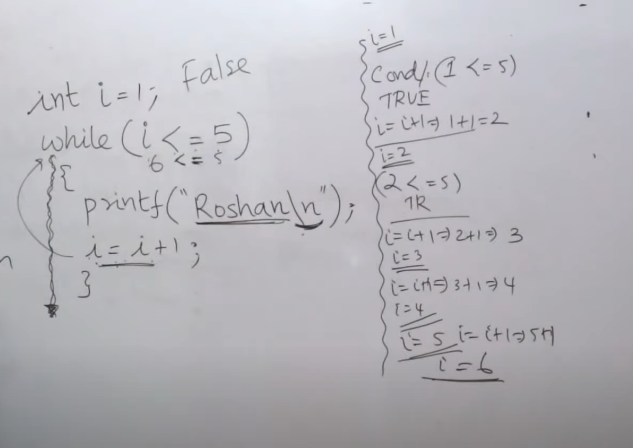 int i=1; False
while (i <= 5)
6 <= 5
{
printf("Roshan\n");
i = i+1;
}
i=1
Cond/: (1 <= 5)
TRUE
i= i+1⇒ 1+1=2
i=2
(2 <= 5)
TR
i= i+1⇒ 2+1⇒ 3
i=3
i= i+1⇒ 3+1⇒ 4
i=4
i= 5 i= i+1⇒ 5+1
i=6